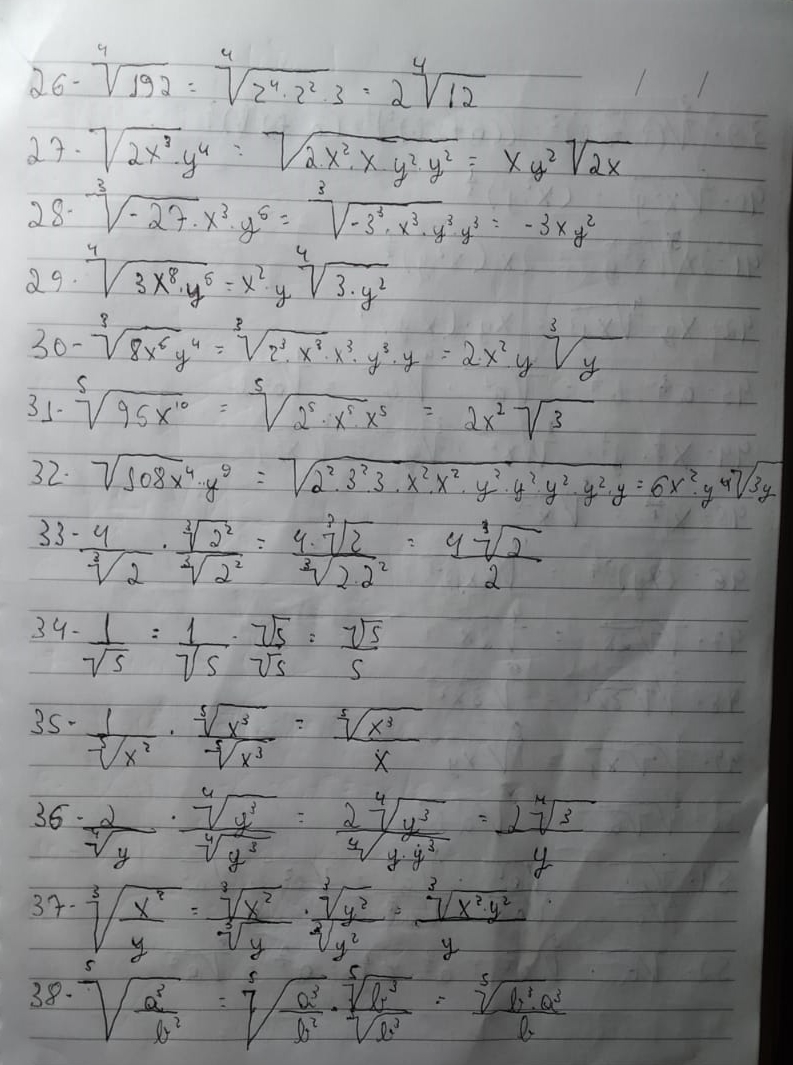 26- ⁴√192 = ⁴√2⁴·2²·3 = 2 ⁴√12
27- √2x³·y⁴ = √2x²·x·y²·y² = xy² √2x
28- ³√-27·x³·y⁶ = ³√-3³·x³·y³y³ = -3xy²
29- ⁴√3x⁸·y⁶ = x²·y ⁴√3·y²
30- ³√8x⁶y⁴ = ³√2³·x³·x³·y³·y = 2·x²y ³√y
31- ⁵√96x¹⁰ = ⁵√2⁵·x⁵·x⁵ = 2x² √3
32- √108x⁴·y⁹ = √2²·3²3·x²x²·y²·y²·y²·y²·y = 6x²·y⁴√3y
33- 4/³√2 · ³√2²/³√2² = 4·³√2/³√2·2² = 4 ³√2/2
34- 1/√5 = 1/√5 · √5/√5 = √5/5
35- 1/⁵√x² · ⁵√x³/⁵√x³ = ⁵√x³/x
36- 2/⁴√y · ⁴√y³/⁴√y³ = 2 ⁴√y³/⁴√y·y³ = 2 ⁴√3/y
37- ³√x²/y = ³√x²/³√y · ³√y²/³√y² = ³√x²·y²/y
38- ⁵√a³/b² = ⁵√a³/b² · ⁵√b³/⁵√b³ = ⁵√b³·a³/b